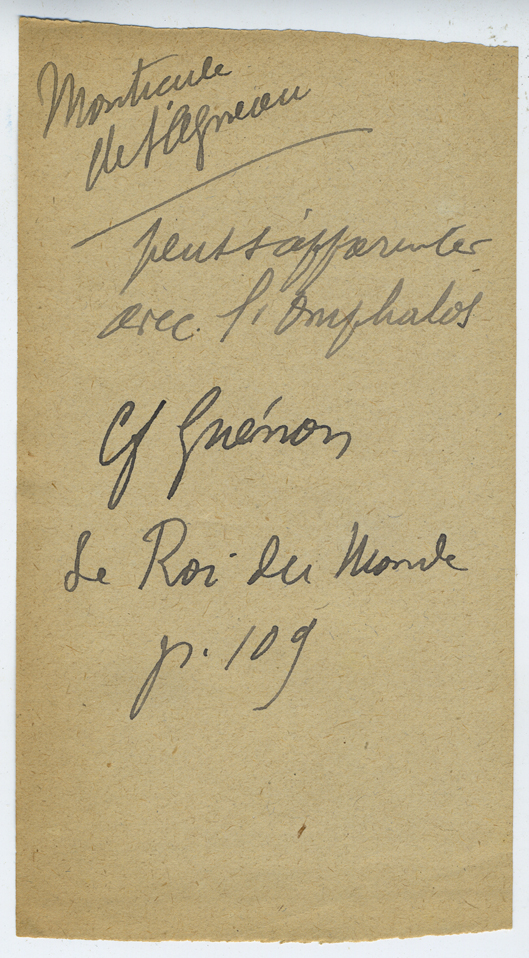 Monticule
de l'Agneau
peut s'apparenter
avec l'omphalos
Cf Guénon
Le Roi du Monde
p. 109